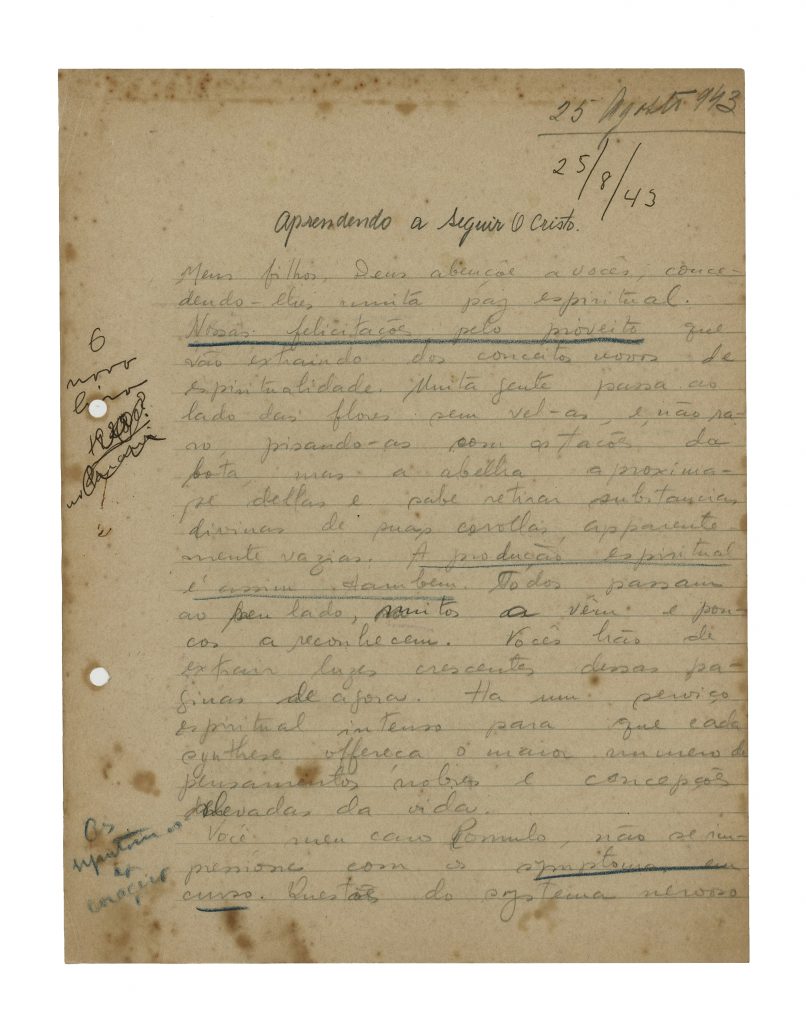 25 Agosto 943
25/8/43
Aprendendo a seguir O Cristo.
Meus filhos, Deus abençôe a vocês, conce-
dendo-lhes muita paz espiritual.
Nossas felicitações pelo proveito que
vão extraindo dos conceitos novos de
espiritualidade. Muita gente passa ao
lado das flores sem vel-as, e, não ra-
ro, pisando-as com os tacões da
bota, mas a abelha aproxima-
se dellas e sabe retirar substancias
divinas de suas corollas, apparente-
mente vazias. A produção espiritual
é assim tambem. Todos passam
ao seu lado, muitos a vêm e pou-
cos a reconhecem. Vocês hão de
extrair luzes crescentes dessas pa-
ginas de agora. Ha um serviço
espiritual intenso para que cada
synthese offereca o maior numero de
pensamentos nobres e concepções
elevadas da vida.
Você, meu caro Romulo, não se im-
pressione com os symptomas em
curso. Questões do systema nervoso
6
novo
livro
Os
symptomas
do
coração